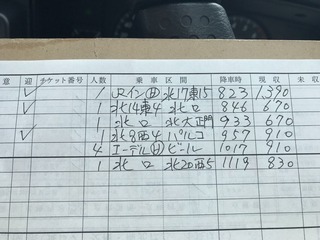 意 迎 チケット番号 人数 乗車区間 降車時 現収 未収
✓ 1 JRイン(H) 北17東15 823 1390
1 北14東4 北口 846 670
1 北口 北大正門 933 670
✓ 1 北8西4 パルコ 957 910
4 エーデル(H) ビール 1017 910
1 北口 北20西5 1119 830